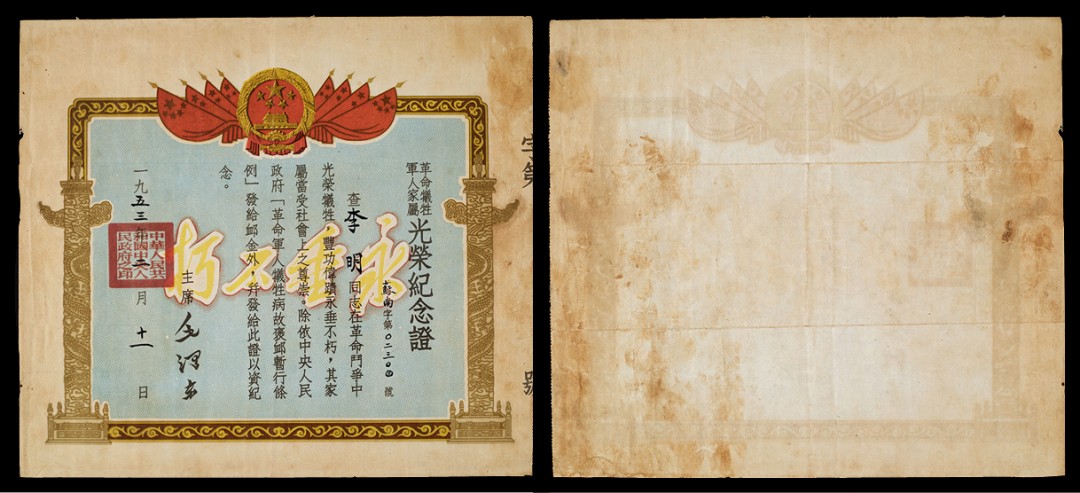 字第 號
革命犧牲
軍人家屬
光榮紀念證
蘇南字第〇二三〇四號
查李明同志在革命鬥爭中
光榮犧牲,豐功偉蹟永垂不朽,其家
屬當受社會上之尊崇。除依中央人民
政府「革命軍人犧牲病故褒卹暫行條
例」發給卹金外,并發給此證以資紀
念。
永垂不朽
主席 毛澤東
一九五三年三月十一日
中華人民共
和國中央人
民政府之印